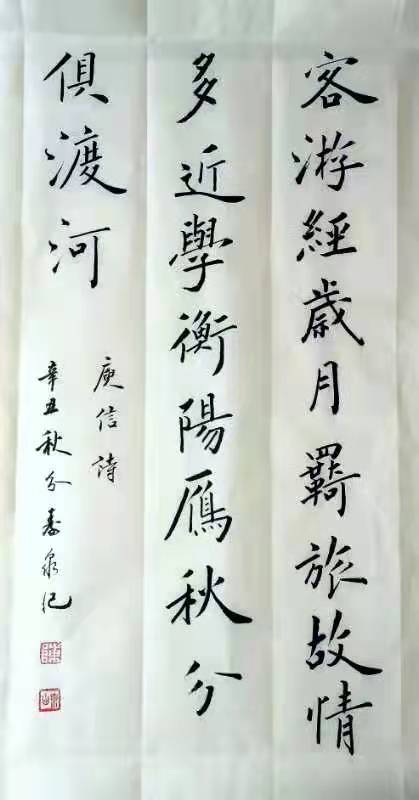 客游經歲月羇旅故情
多近學衡陽雁秋分
俱渡河
庾信詩
辛丑秋分壽泉記